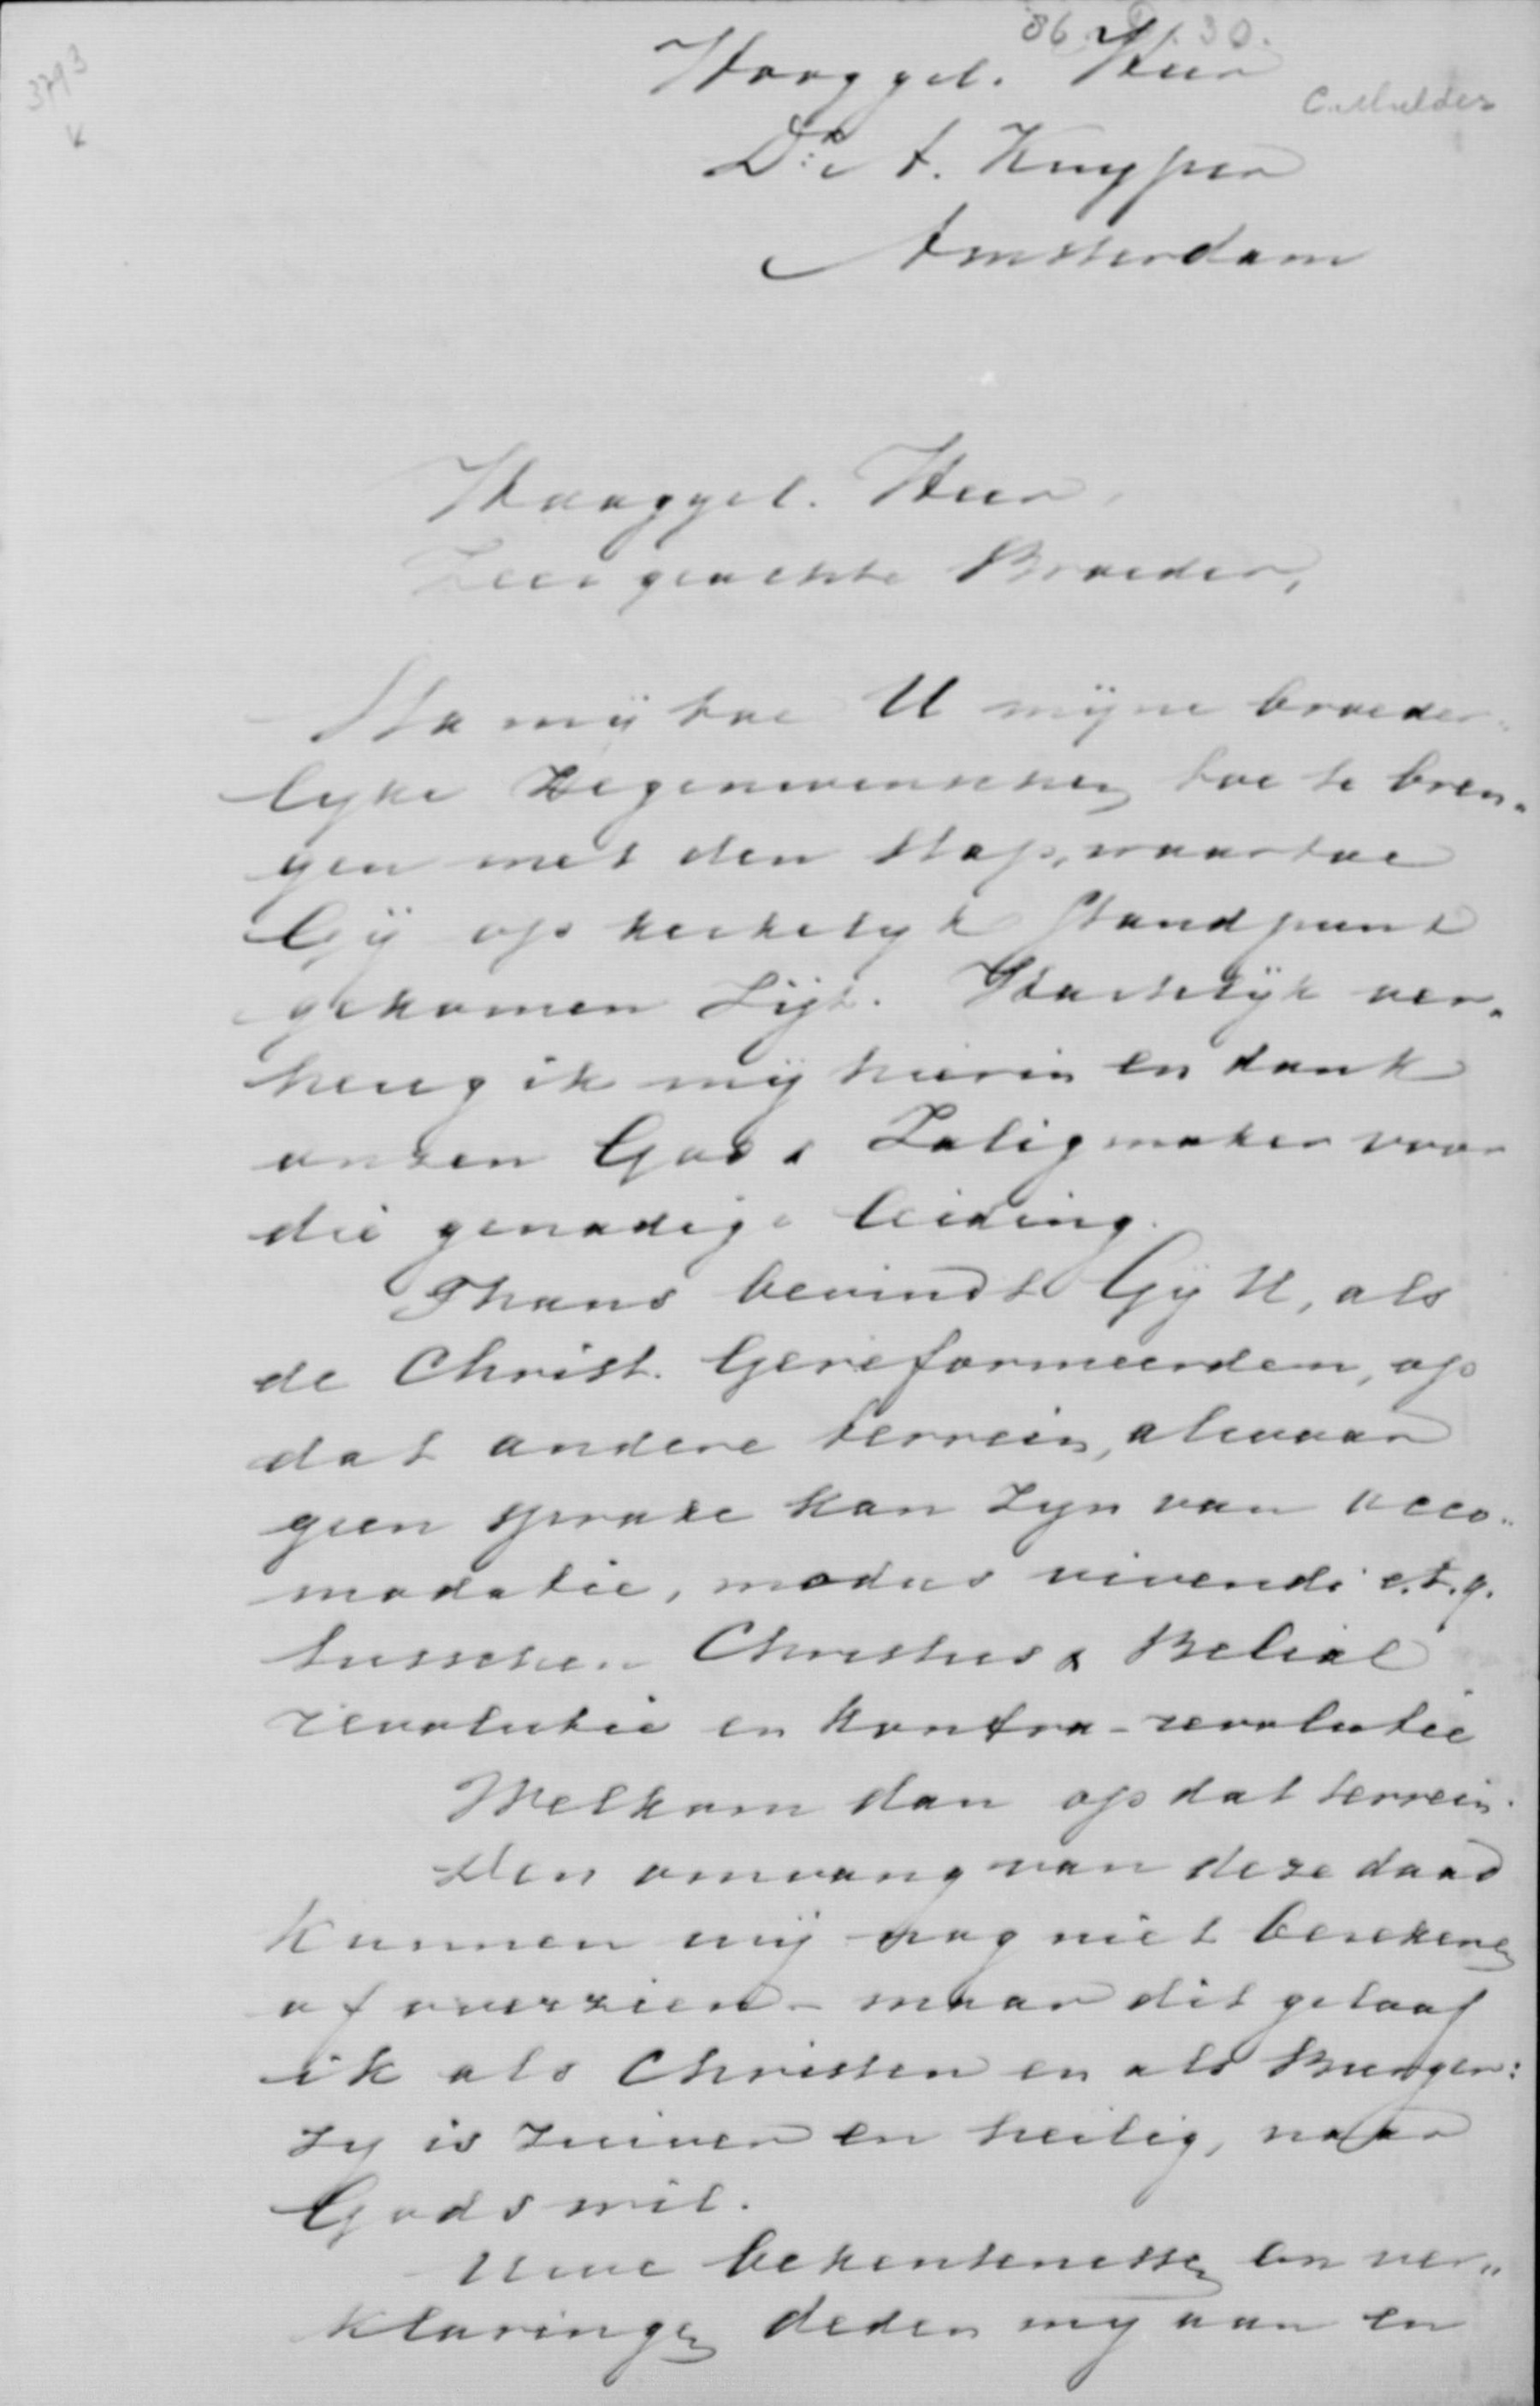 86.D.30.
3793
K
C. Mulder
Hooggel. Heer
Dr. A. Kuyper
Amsterdam
Hooggel. Heer,
Zeer geachte Broeder,
Sta mij toe U mijne broeder„
lyke Zegenwenschen toe te bren„
gen met den stap, waartoe
Gij op kerkelyk standpunt
gekomen Zijt. Hartelijk ver„
heug ik mij hierin en dank
onzen God & Zaligmaker voor
die genadige leiding.
Thans bevindt Gij U, als
de Christ. Gereformeerden, op
dat andere terrein, alwaar
geen sprake kan Zyn van acco„
modatie, modus vivendi e.t.q.
tusschen Christus & Belial
revolutie en kontra-revolutie
Welkom dan op dat terrein.
Den omvang van deze daad
kunnen wij nog niet berekenen
of overzien – maar dit geloof
ik als Christen en als Burger:
Zy is Zuiver en heilig, naar
Gods wil.
Uwe bekentenissen en ver„
klaringen deden my aan en